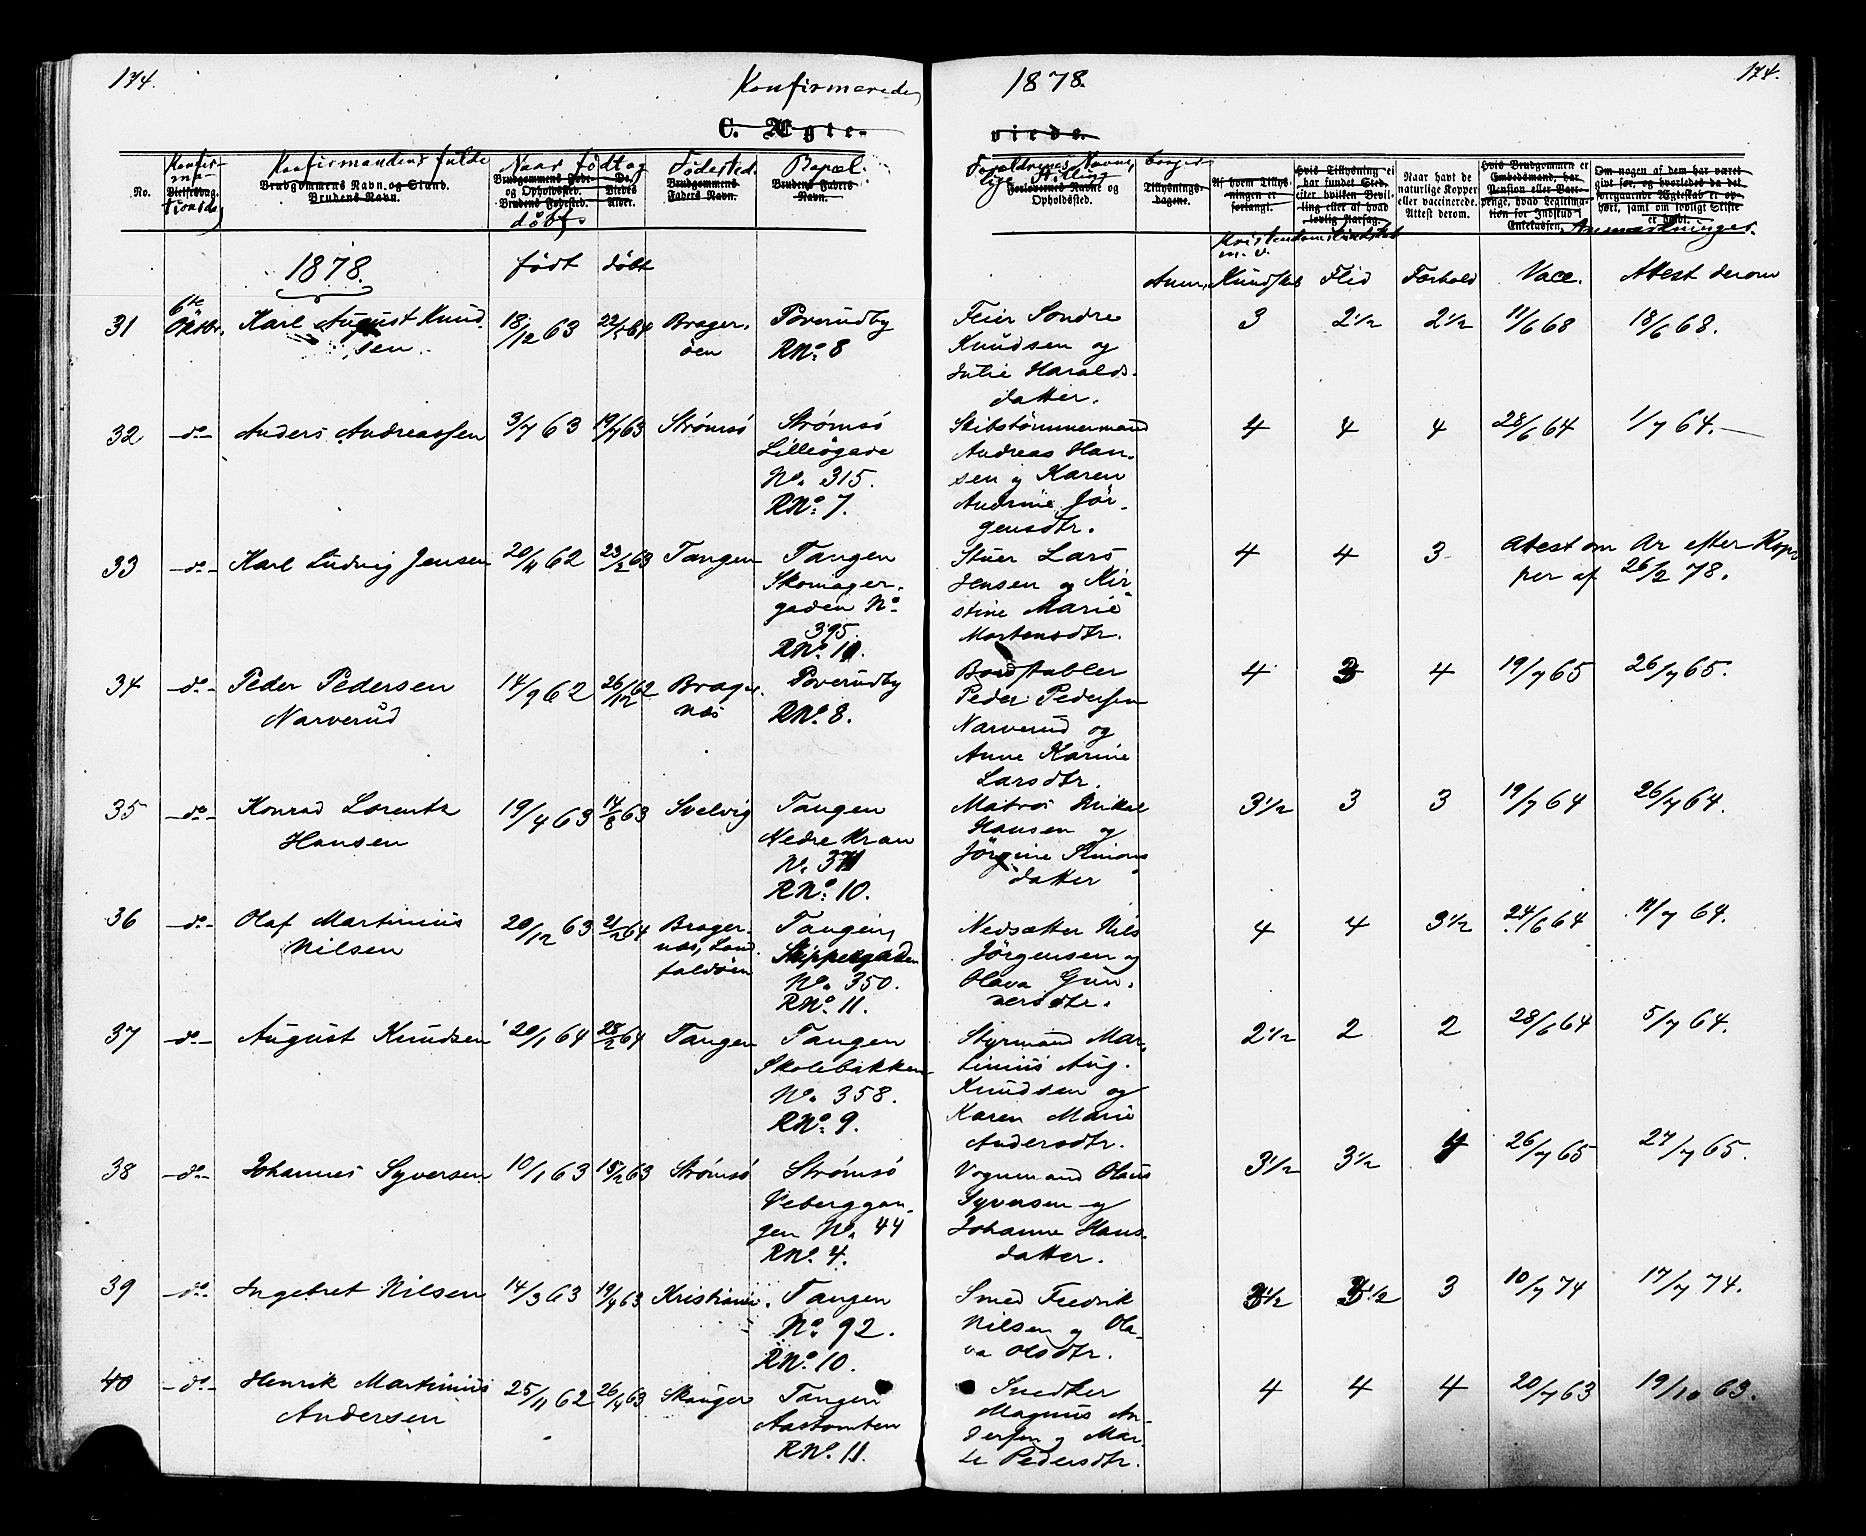 174.
Konfirmerede
1878.
174.
C. Ægte-
viede.
No.
Konfir-
ma-
tionsdag
Vielsesdag.
Konfirmandens fulde
Brudgommens Navn og Stand.
Brudens Navn.
Naar født og
døbt.
Brudgommens Føde-
og Opholdssted.
Brudens Fødested.
De
Viedes
Alder.
Fødested.
Brudgommens
Faders Navn.
Bopæl.
Brudens Faders
Navn.
Forældrenes Navn,
Stilling
Forlovernes Navne og
Opholdssted.
Tillysnings-
dagene.
Af hvem Tillys-
ningen er
forlangt.
Hvis Tillysning ei
har fundet Sted,
efter hvilken Bevil-
ling eller af hvad
lovlig Aarsag.
Naar havt de
naturlige Kopper
eller vaccinerede.
Attest derom.
Hvis Brudgommen er
Embedsmand, har
Pension eller Vart-
penge, hvad Legitima-
tion for Indskud i
Enkekassen.
Om nogen af dem har været
gift før, og hvorledes da det
foregaaende Ægteskab er op-
hørt, samt om lovligt Skifte
er holdt.
Anmærkninger.
1878.
født døbt
Anm. Kundskab Flid Forhold Vacc. Attest derom
31 6te Oktbr. Karl August Knud-
sen. 18/12 63 22/5 64 Brager-
øen Toverudby
RNo. 8 Feier Sondre
Knudsen og
Julie Haralds-
datter. 3 2 1/2 2 1/2 11/6 68 18/6 68.
32 -do- Anders Andreassen 3/7 63 19/7 63 Strømsø Strømsø
Lilleøgade
No. 315.
RNo. 7. Skibstømmermand
Andreas Han-
sen og Karen
Andrine Jör-
gensdtr. 4 4 4 28/6 64 1/7 64.
33 -do- Karl Ludvig Jensen 20/11 62 23/2 63 Tangen Tangen
Skomager-
gaden No.
395.
RNo. 11. Stuer Lars
Jensen og Kir-
stine Marie
Mortensdtr. 4 4 3 Attest om Ar efter Kop-
per af 26/2 78.
34 -do- Peder Pedersen
Narverud 14/9 62 26/12 62 Brager-
næs Toverudby
RNo. 8. Bordstabler
Peder Pedersen
Narverud og
Anne Karine
Larsdtr. 4 3 4 19/7 65 26/7 65.
35 -do- Konrad Lorentz
Hansen 19/4 63 14/8 63 Svelvig Tangen
Nedre Kran
No. 371
RNo. 10. Matros Mikal
Hansen og
Jörgine Simons-
datter 3 1/2 3 3 19/7 64 26/7 64.
36 -do- Olaf Martinius
Nilsen 20/12 63 21/2 64 Brager-
næs, Land-
faldøen Tangen,
Skippergaden
No. 350.
RNo. 11. Nedsætter Nils
Jörgensen og
Olava Gun-
nersdtr. 4 4 3 1/2 24/6 64 11/7 64.
37 -do- August Knudsen 20/1 64 28/2 64 Tangen Tangen
Skolebakken
No. 358.
RNo. 9. Styrmand Mar-
tinius Aug.
Knudsen og
Karen Marie
Andersdtr. 2 1/2 2 2 28/6 64 5/7 64.
38 -do- Johannes Syversen 10/1 63 15/2 63 Strømsø Strømsø
Veberggan-
gen No. 44
RNo. 4. Vognmand Olaus
Syversen og
Johanne Hans-
datter. 3 1/2 3 1/2 4 26/7 65 27/7 65.
39 -do- Ingebret Nilsen 14/3 63 19/4 63 Kristiania. Tangen
No. 92.
RNo. 10. Smed Fredrik
Nilsen og Ola-
va Olsdtr. 3 1/2 3 1/2 3 10/7 74 17/7 74.
40 -do- Henrik Martinius
Andersen 25/11 62 26/4 63 Skauger Tangen
Aastomten
RNo. 11. Snedker
Magnus An-
dersen og Mar-
te Pedersdtr. 4 4 4 20/7 63 19/10 63.